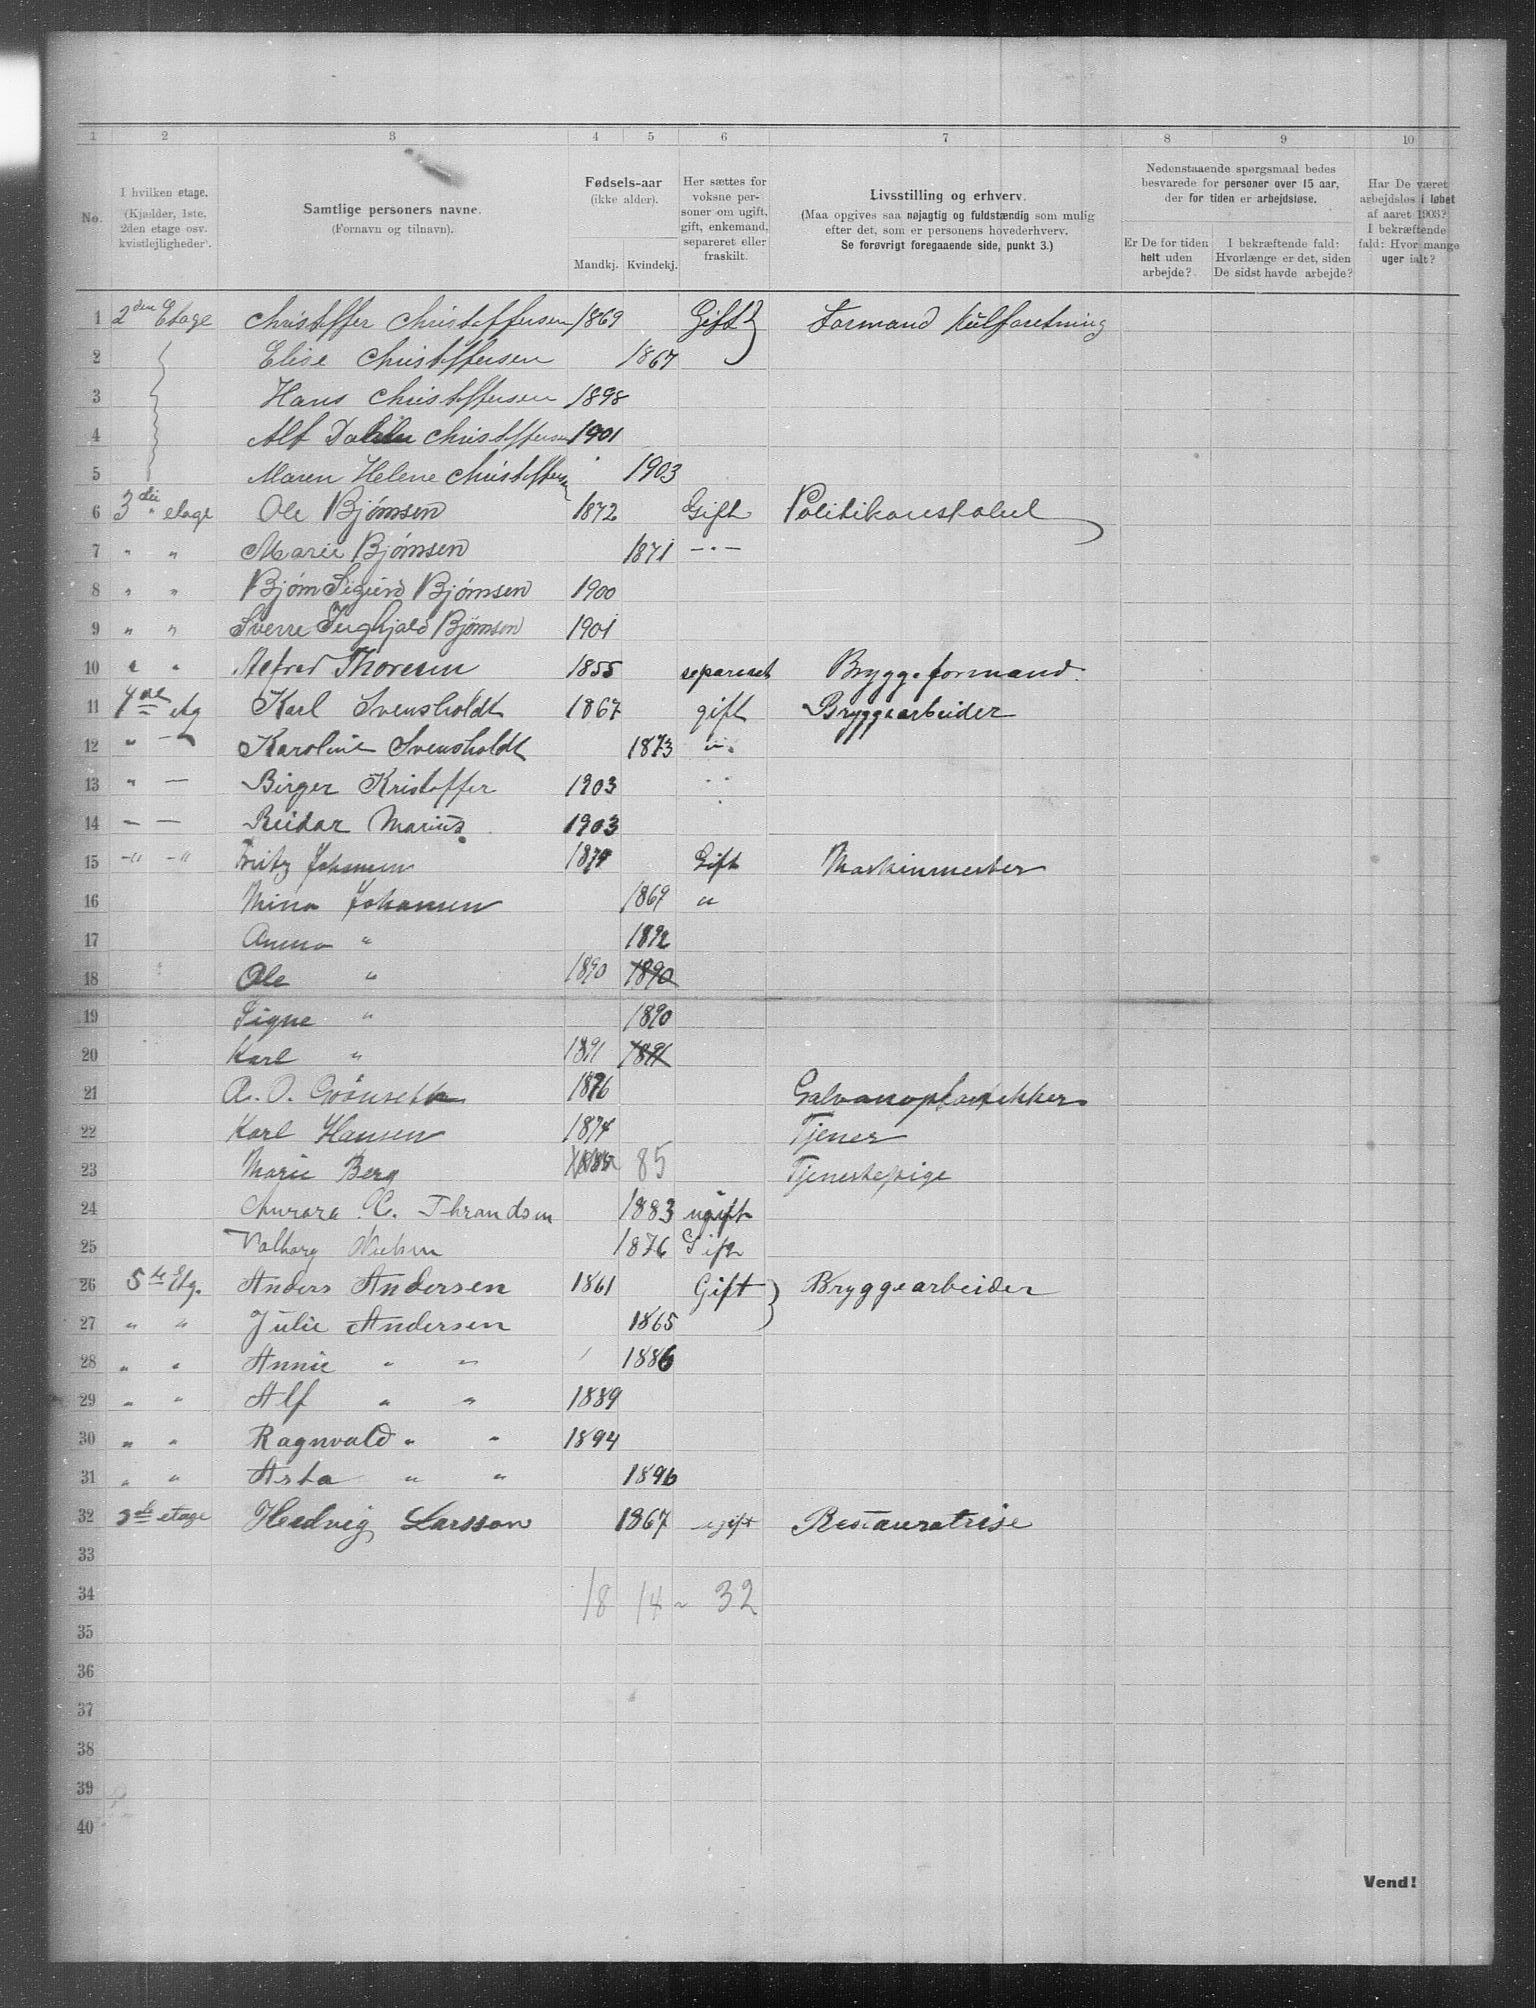 1 2 3 4 5 6 7 8 9 10
No.
I hvilken etage. (Kjælder, 1ste, 2den etage osv. kvistlejligheder).
Samtlige personers navne. (Fornavn og tilnavn).
Fødsels-aar (ikke alder).
Mandkj. Kvindekj.
Her sættes for voksne personer om ugift, gift, enkemand, separeret eller fraskilt.
Livsstilling og erhverv. (Maa opgives saa nøjagtig og fuldstændig som mulig efter det, som er personens hovederhverv. Se forøvrigt foregaaende side, punkt 3.)
Nedenstaaende spørgsmaal bedes besvarede for personer over 15 aar, der for tiden er arbejdsløse.
Er De for tiden helt uden arbejde?
I bekræftende fald: Hvorlænge er det, siden De sidst havde arbejde?
Har De været arbejdsløs i løbet af aaret 1903? I bekræftende fald: Hvor mange uger ialt?
1 2den Etage Christoffer Christoffersen 1869 Gift Formand Kulforetning
2 Elise Christoffersen 1867
3 Hans Christoffersen 1898
4 Alf Christoffersen 1901
5 Maren Helene Christoffersen 1903
6 3die etage Ole Bjørnsen 1872 Gift Politikonstabel
7 " " Marie Bjørnsen 1871 — " —
8 " " Bjørn Sigurd Bjørnsen 1900
9 " " Sverre Bjørnsen 1901
10 " " Alfred Thoresen 1855 separeret Bryggeformand.
11 4de etg Karl Svensholdt 1867 gift Bryggearbeider
12 " — Karoline Svensholdt 1873 "
13 " — Birger Kristoffer 1903
14 — — Reidar Marius 1903
15 —"— —" Fritz Johansen Gift Maskinmester
16 Mina Johansen 1869 "
17 Anna " 1892
18 Ole " 1890 1890
19 Signe " 1890
20 Karl " 1891 1891
21 A. O. 1876
22 Karl Hansen 1874 Tjener
23 Marie Berg 85 Tjenestepige
24 Aurora C. Thrandsen 1883 ugift
25 Valborg Nielsen 1876 Gift
26 5te Etg. Anders Andersen 1861 Gift Bryggearbeider
27 " " Julie Andersen 1865
28 " " Annie " " 1886
29 " " Alf " " 1889
30 " " Ragnvald " " 1894
31 " " Asta " " 1896
32 3de etage Hedvig Larsson 1867 ugift Restauratrise
33
34 18 14 ~ 32
35
36
37
38
39
40
Vend!